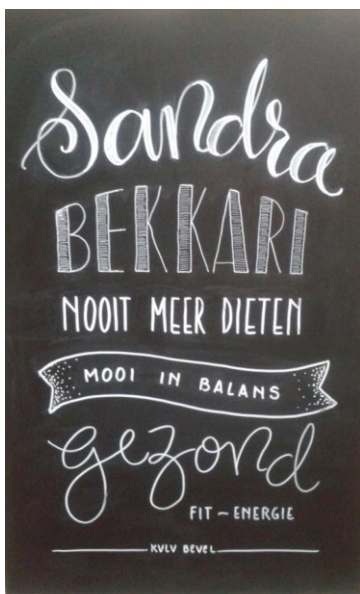 Sandra
BEKKARI
NOOIT MEER DIETEN
MOOI IN BALANS
gezond
FIT ~ ENERGIE
KVLV BEVEL